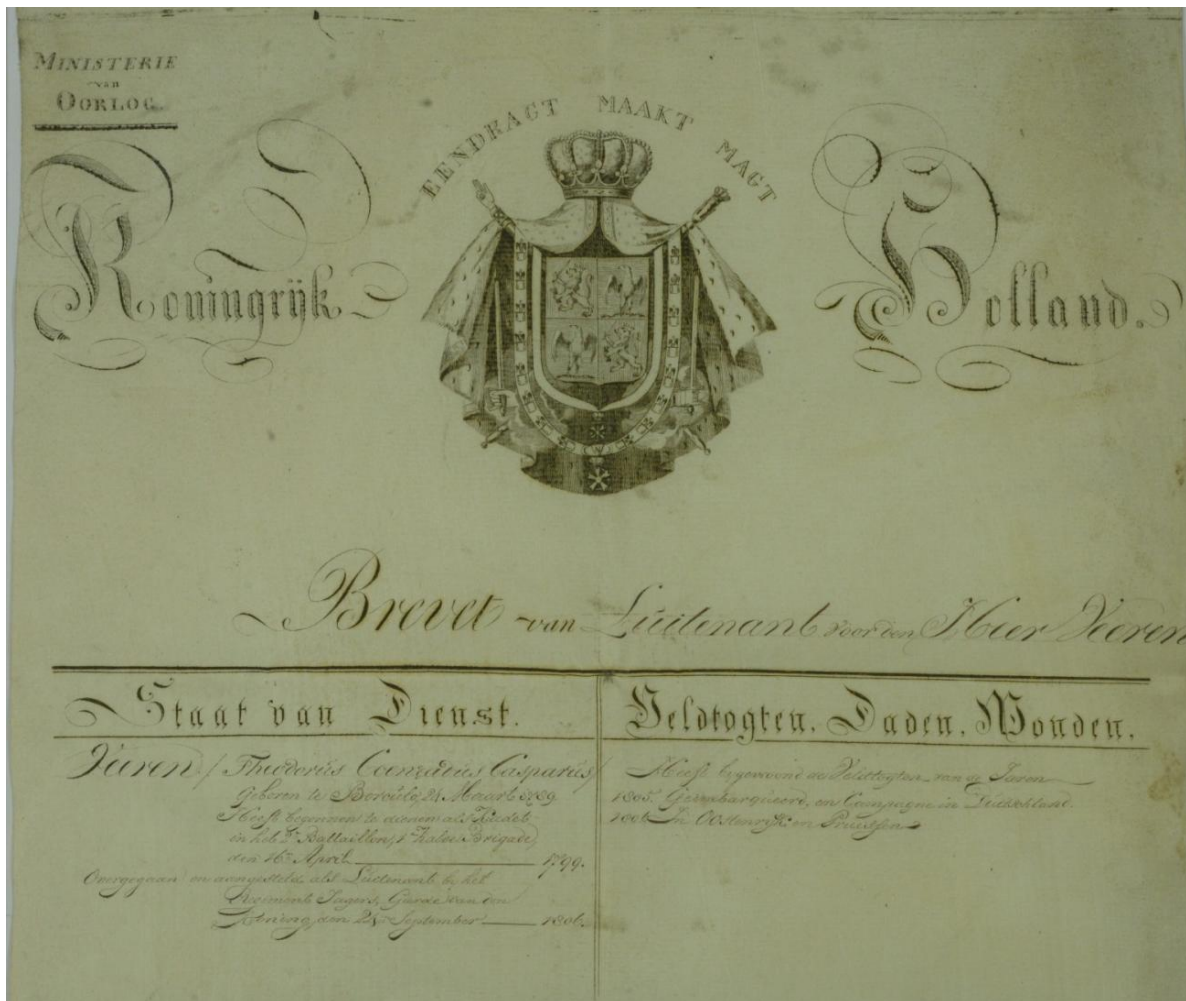 MINISTERIE
van
OORLOG.
EENDRAGT MAAKT MAGT
Koningrijk Holland.
Brevet van Luitenant voor den Heer Veeren
Staat van Dienst.
Veeren / Theodorus Coenradus Casparus /
Geboren te Borculo, 24 Maart 1789
Heeft begonnen te dienen als Kadet
in het 2e Battaillon, 1e halve Brigade,
den 16e April 1799.
Overgegaan en aangesteld als Luitenant bij het
Regiment Jagers, Garde van den
Koning, den September 1806.
Veldtogten, Daden, Wonden.
Heeft bijgewoond de Veldtogten van de Jaren
1805. Geembarqueerd, en Campagne in Duitschland.
1806 In Oostenrijk en Pruissen